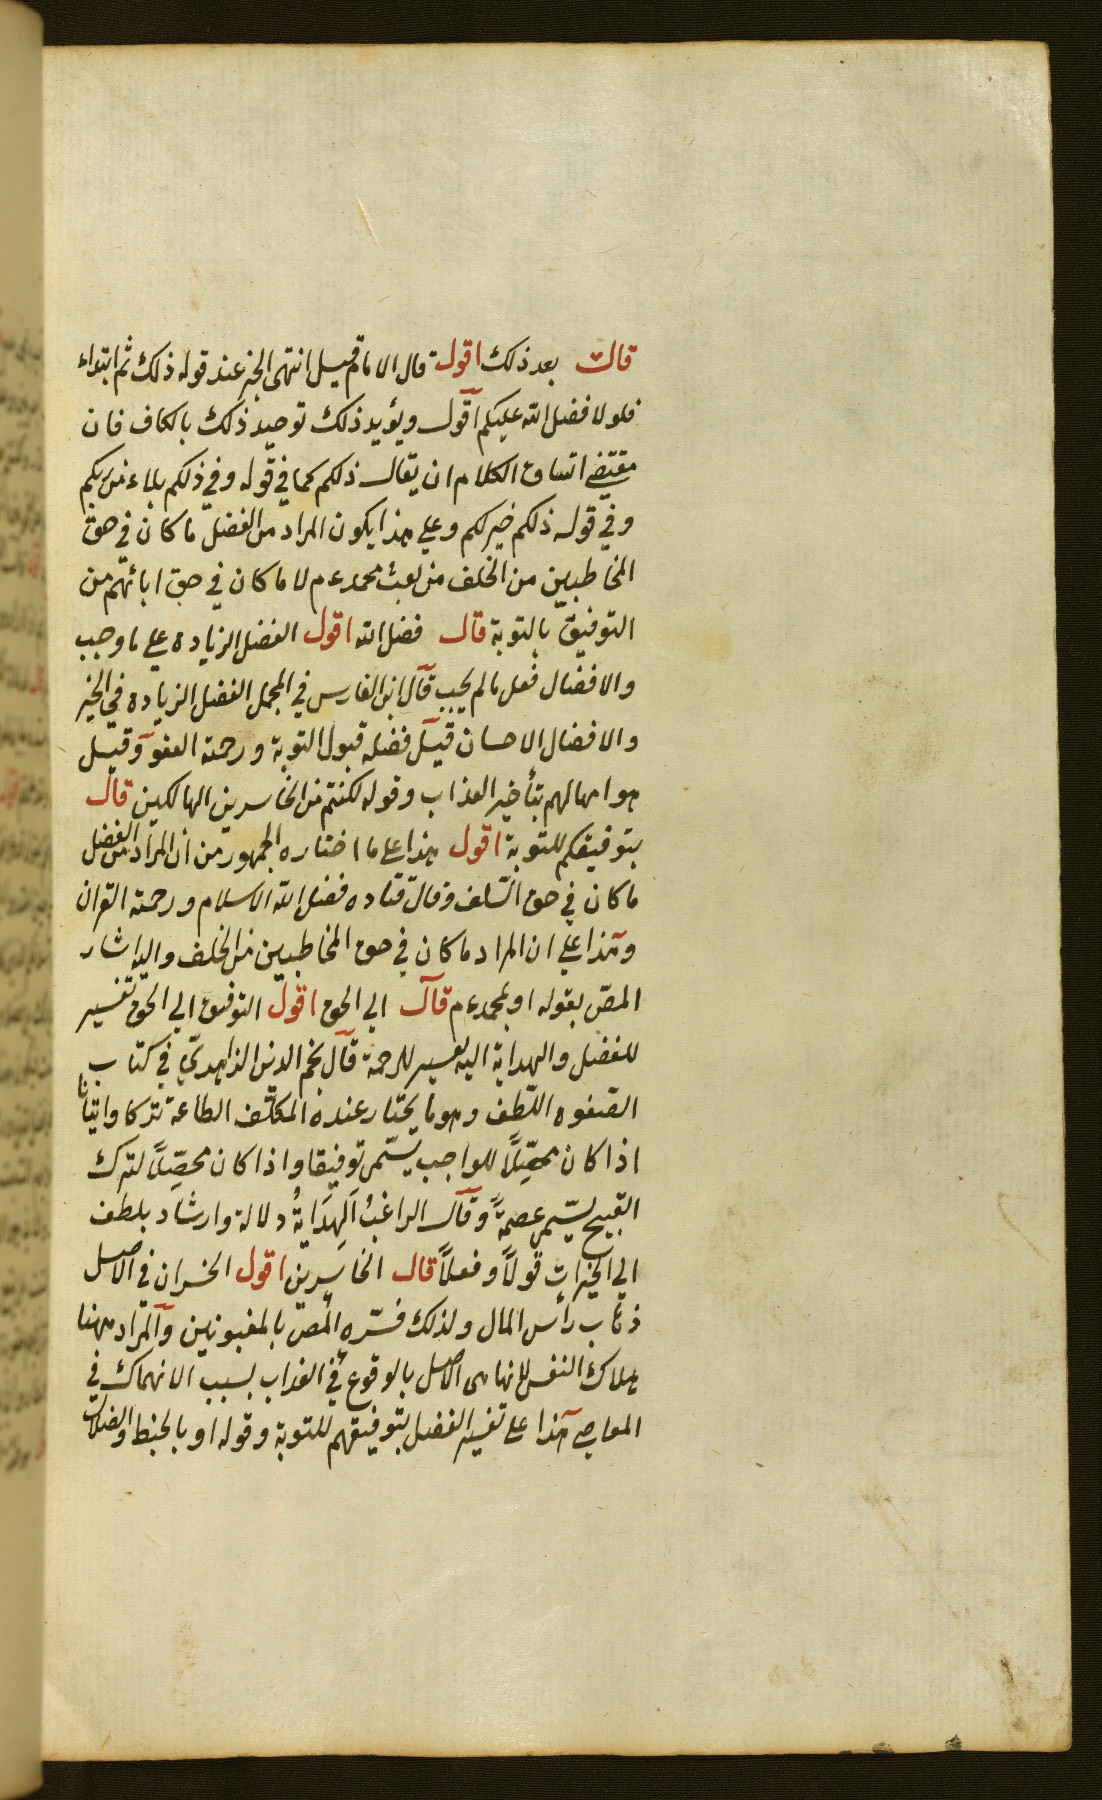 قال بعد ذلك اقول قال الامام قيل انتهى الخبر عند قوله ذلك ثم ابتداء
فلولا فضل الله عليكم اقول ويؤيد ذلك توحيد ذلك بالكاف فان
مقتضى اتساق الكلام ان يقال ذلكم كما في قوله وفي ذلكم بلاء من ربكم
وفي قوله ذلكم خير لكم وعلى هذا يكون المراد من الفضل ما كان في حق
المخاطبين من الخلف من بعث محمد ءم لا ما كان في حق ابائهم من
التوفيق بالتوبة قال فضل الله اقول الفضل الزيادة على ما وجب
والافضال فعل ما لم يجب قال ابن الفارس في المجمل الفضل الزيادة في الخير
والافضال الاحسان قيل فضله قبول التوبة ورحمته العفو وقيل
هو امهالهم بتأخير العذاب وقوله لكنتم من الخاسرين الهالكين قال
بتوفيقكم للتوبة اقول هذا على ما اختاره الجمهور من ان المراد من الفضل
ما كان في حق السلف وقال قتاده فضل الله الاسلام ورحمته القران
وهذا على ان المراد ما كان في حق المخاطبين من الخلف واليه اشار
المص بقوله او بمحمد ءم قال الى الحق اقول التوفيق الى الحق تفسير
للفضل والهداية اليه تفسير للرحمة قال نجم الدين الزاهدي في كتاب
الصفوه اللطف وهو ما يختار عنده المكلف الطاعة تركا واتيانا
اذا كان محصلًا للواجب يسمى توفيقا واذا كان محصلًا لترك
القبيح يسمى عصمةً وقال الراغبُ الهِدَايةُ دلالة وارشاد بلطف
الى الخيرات قولًا وفعلًا قال الخاسرين اقول الخسران في الاصل
ذهاب رأس المال ولذلك فسّره المص بالمغبونين والمراد ههنا
هلاك النفس لانها هى الاصل بالوقوع في العذاب بسبب الانهماك في
المعاصى هذا على تفسير الفضل بتوفيقهم للتوبة وقوله او بالخبط والضلال